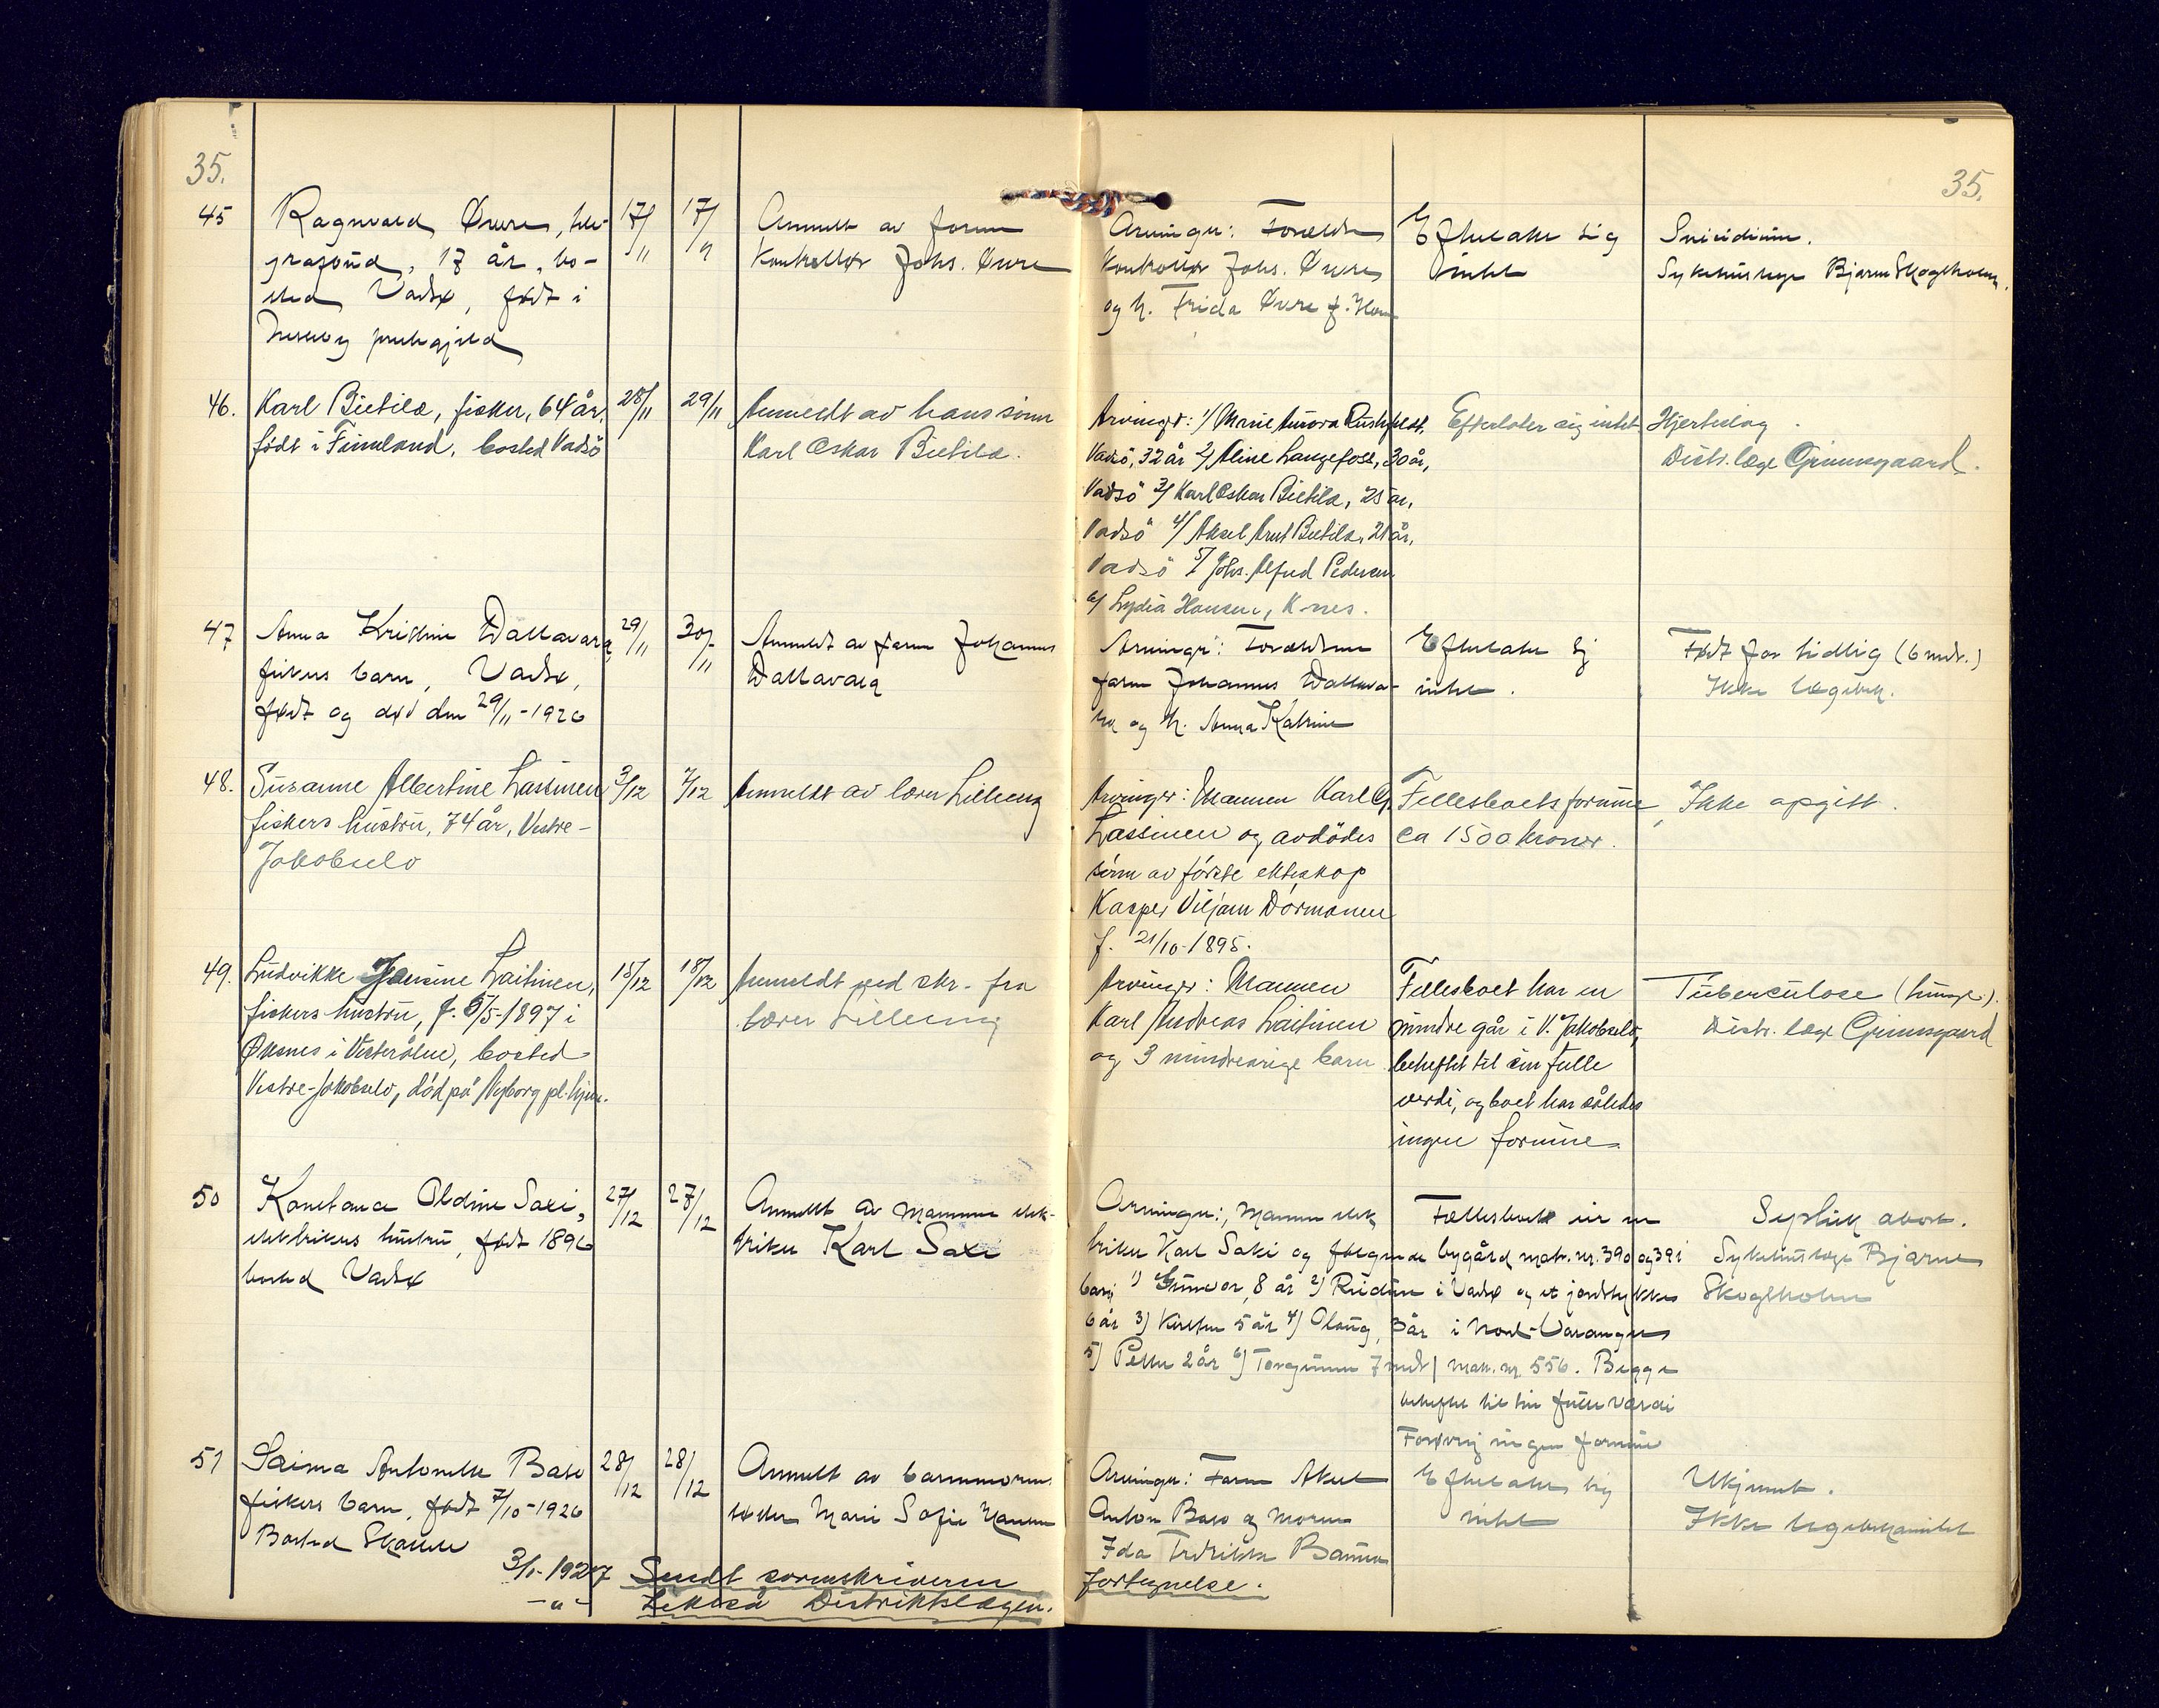 35.
35.
45
Ragnvald Øvre, tele-
grafbud, 17 år, bo-
sted Vadsø, født i
Nesseby prestegjeld
17/11
17/11
Anmeldt av faren
kontrollør Johs. Øvre
Arvinger: Foreldre
kontrollør Johs. Øvre
og h. Frida Øvre f.
Efterlater sig
intet
Suicidium.
Sykehuslæge Bjarne Skogholm.
46.
Karl Bietilæ, fisker, 64 år,
født i Finnland, bosted Vadsö
28/11
29/11
Anmeldt av hans sönn
Karl Oskar Bietilæ.
Arvinger: 1/ Marie Aurora Rustefjeldt,
Vadsö, 32 år 2/ Aline Langefoss, 30 år,
Vadsö 3/ Karl Oskar Bietilæ, 25 år,
Vadsö 4/ Aksel Arnt Bietilæ, 21 år,
Vadsö 5/ Johs. Alfred Pedersen
6/ Lydia Hansen, K-nes.
Efterlater sig intet
Hjerteslag.
Distr. læge Grinnsgaard.
47
Anna Kristine Wallavara,
fiskers barn, Vadsø,
født og død den 29/11-1926
29/11
30/11
Anmeldt av faren Johannes
Wallavara
Arvinger: Foreldrene
faren Johannes Wallava-
ra og h. Anna Katrine
Efterlater sig
intet.
Født for tidlig (6 mdr.)
Ikke lægebeh.
48.
Susanne Albertine Lassinen
fiskers hustru, 74 år, Vestre-
Jakobselv
3/12
7/12
Anmeldt av lærer Lilleeng
Arvinger: Mannen Karl G.
Lassinen og avdödes
sönn av förste ekteskap
Kasper Viljam Dörmänen
f. 21/10-1895.
Fellesboets formue
ca 1500 kroner.
Ikke opgitt.
49.
Ludvikke Jensine Laitinen,
fiskers hustru, f. 5/5-1897 i
Öksnes i Vesterålen, bosted
Vestre-Jakobselv, död på Nyborg pl.hjem.
15/12
18/12
Anmeldt ved skr. fra
lærer Lilleeng
Arvinger: Mannen
Karl Andreas Laitinen
og 3 mindreårige barn
Fellesboet har en
mindre går i V. Jakobselv,
beheftet til sin fulle
verdi, og boet har således
ingen formue
Tüberculose (lunge).
Distr. læge Grinnsgaard
50
Konstance Oldine Saxi,
elektrikers hustru, født 1896
bosted Vadsø
27/12
27/12
Anmeldt av mannen elek-
triker Karl Saxi
Arvinger: Mannen elek
triker Karl Saxi og følgende
barn 1) Gunvor, 8 år 2) Reidun
6 år 3) Kirsten 5 år 4) Olaug, 3 år
5) Petter 2 år 6) Torgunn 7 mdr
Fællesboet eier en
bygård matr. nr. 390 og 391
i Vadsø og et jordstykke
i Nord-Varanger
matr. nr. 556. Begge
beheftet til sin fulle værdi
Forøvrig ingen formue
Septisk abort.
Sykehuslæge Bjarne
Skogholm
51
Saima Antonette Basø
fiskers barn, født 7/10-1926
Bosted Skallelv
28/12
28/12
Anmeldt av barnemorens
søster Marie Sofie Hansen
Arvinger: Faren Aksel
Anton Basø og moren
Ida Fredrikke
Efterlater sig
intet
Ukjent.
Ikke lægebehandlet
3/1-1927 Sendt sorenskriveren fortegnelse.
-"- Likeså Distriktslægen.